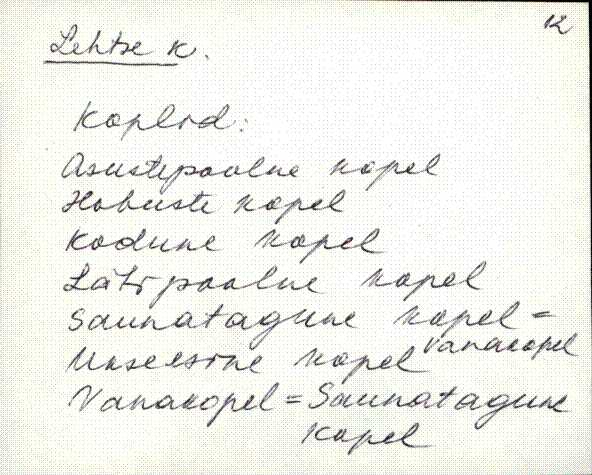 12
Lehtse k.
Koplid:
Asustepoolne kopel
Hobuste kopel
Kodune kopel
Lätipoolne kopel
Saunatagune kopel =
Vanakopel
Ukseesine kopel
Vanakopel = Saunatagune
kopel